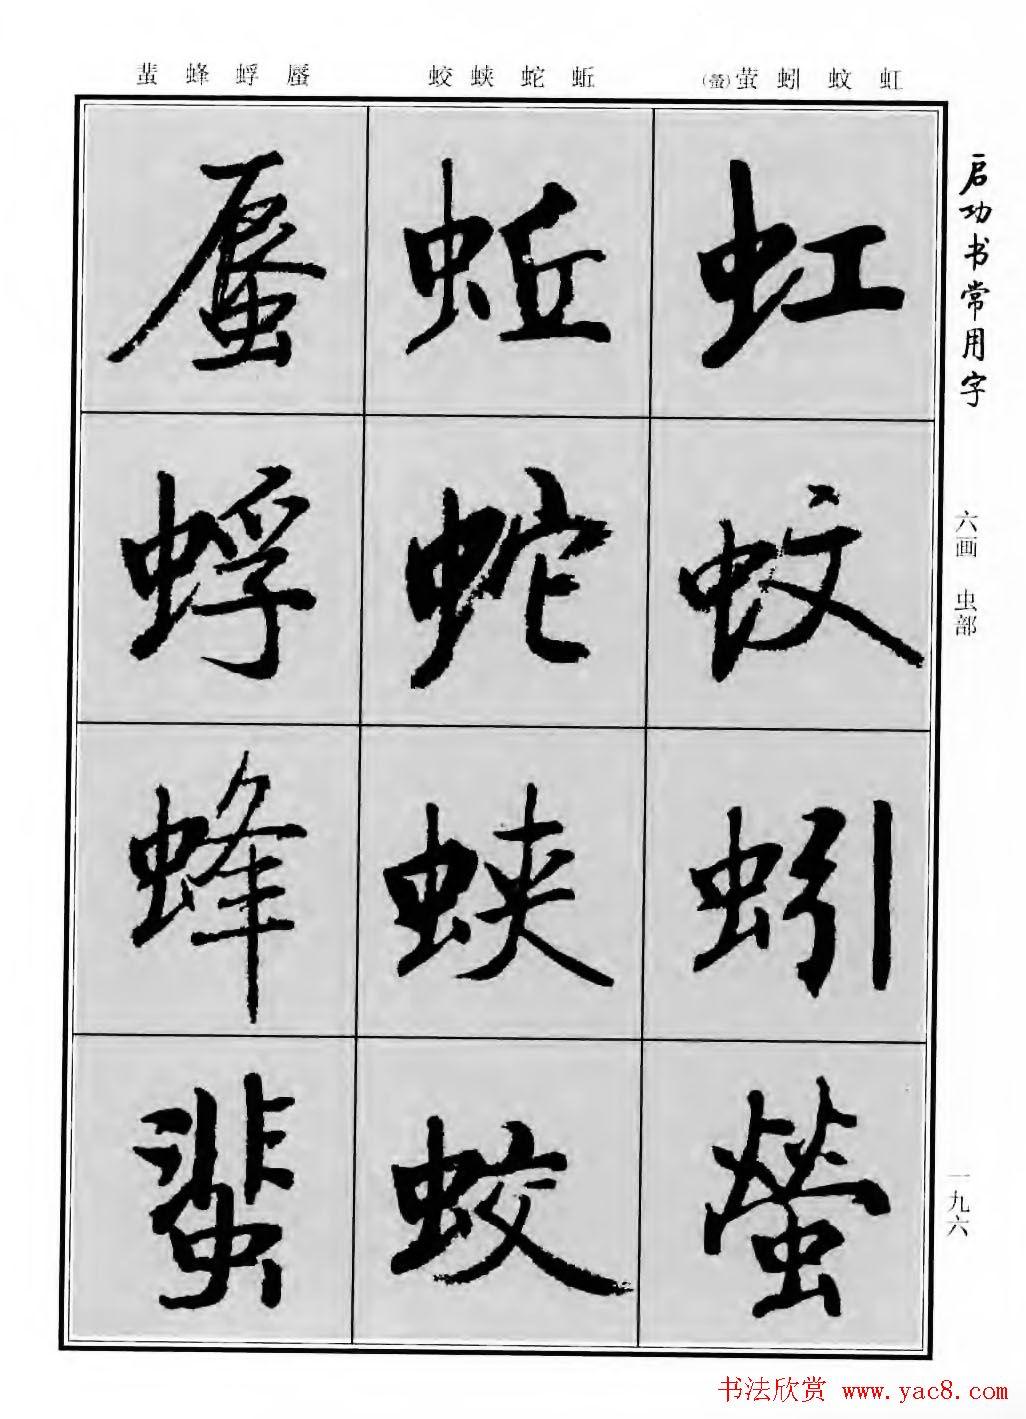 虹 蚊 蚓 萤（螢）
蚯 蛇 蛱 蛟
蜃 蜉 蜂 蜚
虹
蚊
蚓
螢
蚯
蛇
蛱
蛟
蜃
蜉
蜂
蜚
启功书常用字
六画 虫部
一九六
书法欣赏 www.yac8.com